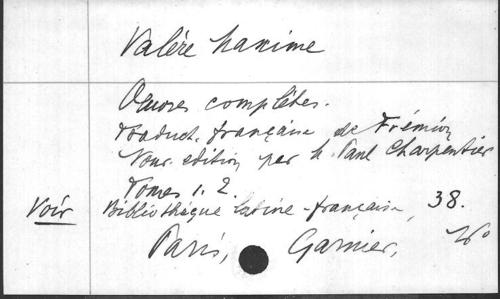 Valère Maxime
Oeuvres complètes.
traduct. française de Frémion
Nouv. edition par M. Paul Charpentier
Tomes 1. 2.
Voir Bibliothèque latine-française, 38.
Paris, Garnier, 16°